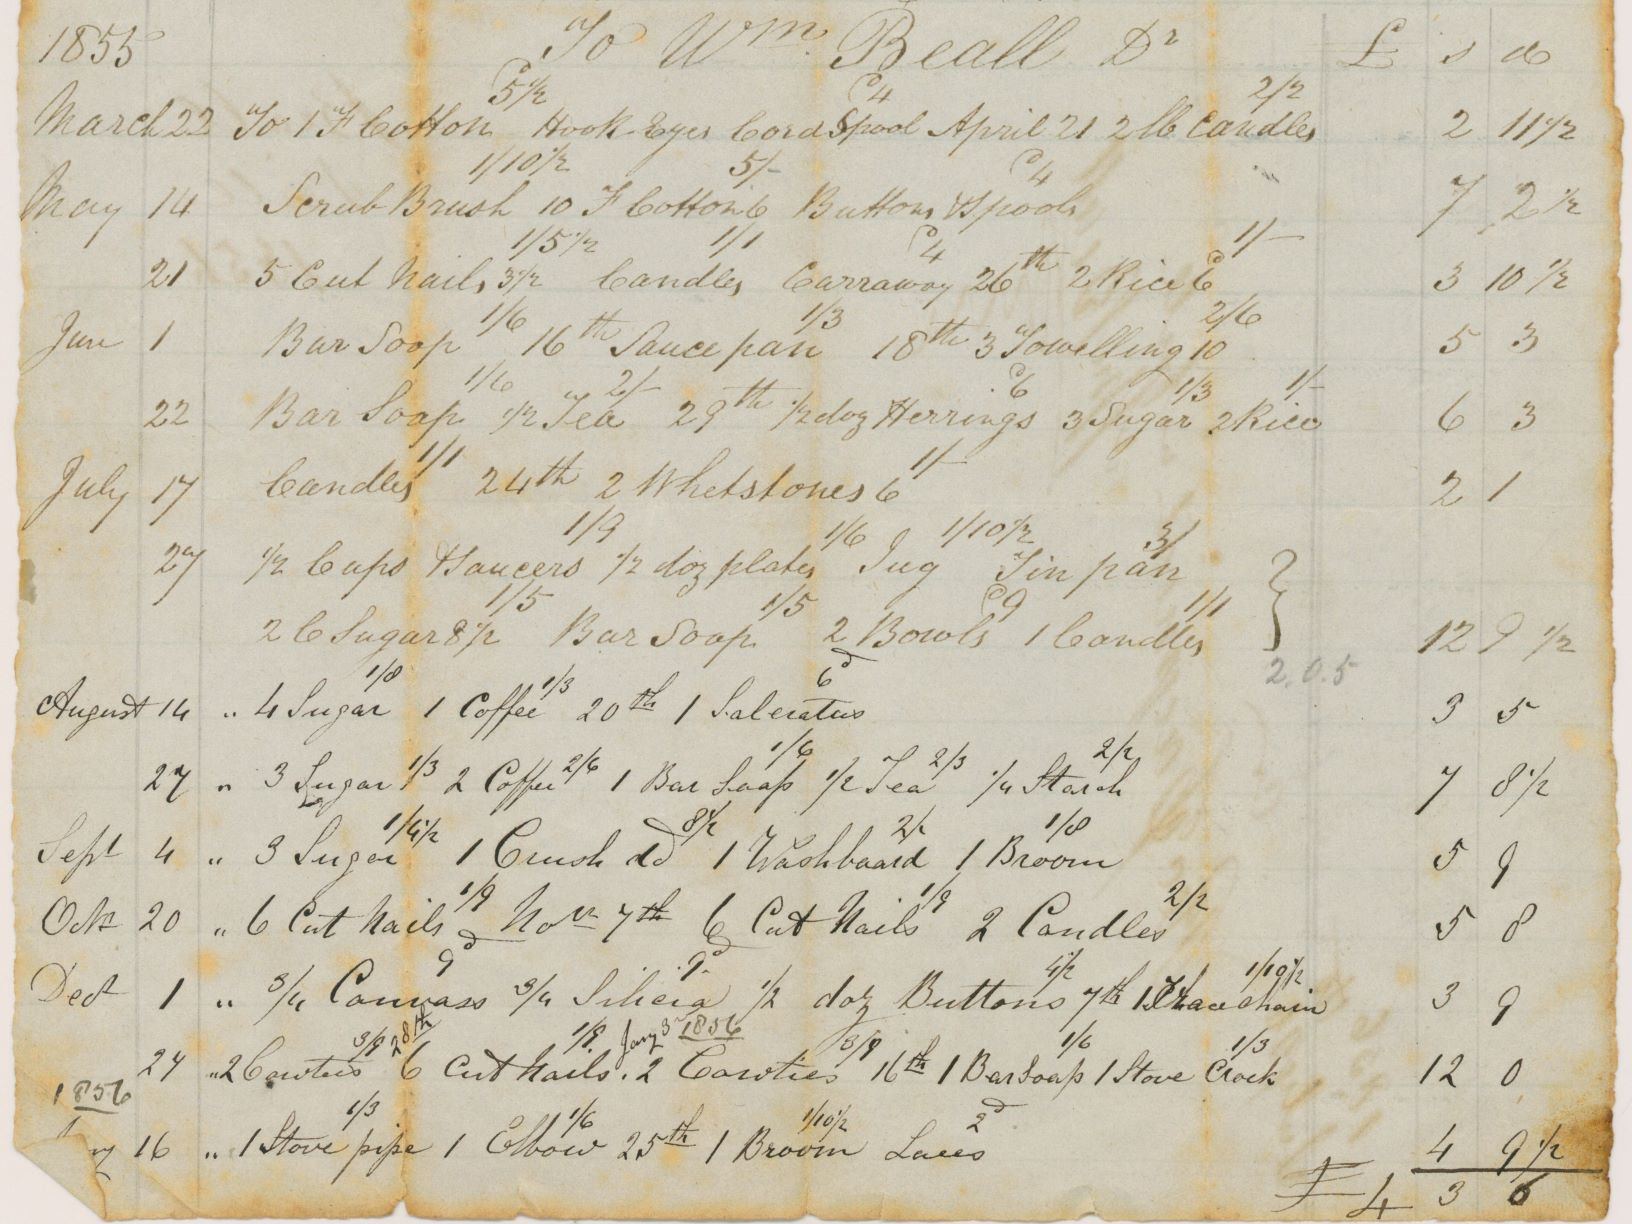 1855 To Wm. Beall Dr £ s d
5½ 4 2/2
March 22 To 1 F Cotton Hook Eyes Cord Spool April 21 2 lb Candles 2 11½
1/10½ 5/- 4
May 14 Scrub Brush 10 F Cotton 6 Buttons & Spools 7 2½
1/5½ 1/1 4 1/-
21 5 Cut Nails 3½ Candles Carraway 26th 2 Rice 6 3 10½
1/6 1/3 2/6
Jun 1 Bar Soap 16th Saucepan 18th 3 Towelling 10 5 3
1/6 2/- 6 1/3 1/-
22 Bar Soap ½ Tea 29th ½ doz Herrings 3 Sugar 2 Rice 6 3
1/1 1/-
July 17 Candles 24th 2 Whetstones 6 2 1
1/9 1/6 1/10½ 3/
27 ½ Cups & Saucers ½ doz plates Jug Tin pan
1/5 1/5 9 1/1
2 C Sugar 8½ Bar Soap 2 Bowls 1 Candles 12 9½
2.0.5
1/8 1/3 6d
August 14 " 4 Sugar 1 Coffee 20th 1 Saleratus 3 5
1/3 2/6 1/6 2/3 2/2
27 " 3 Sugar 2 Coffee 1 Bar Soap ½ Tea ¼ Starch 7 8½
1/4½ 8½ 2/2 1/8
Sept 4 " 3 Sugar 1 Crush do 1 Washboard 1 Broom 5 9
1/9 1/9 2/2
Oct 20 " 6 Cut Nails Nov 7th 6 Cut Nails 2 Candles 5 8
9d 9d 4½ 1/10½
Dect 1 " ¾ Canvass ¾ Silicia ½ doz Buttons 7th 1 Trace chain 3 9
3/9 28th 1/9 Jany 3 1856 3/9 1/6 1/3
27 " 2 Cowties 6 Cut Nails. 2 Cowties 16th 1 Bar Soap 1 Stove Crock 12 0
1856
1/3 1/6 1/10½ 2d
16 " 1 Stove pipe 1 Elbow 25th 1 Broom Laces 4 9½
£4 3 6